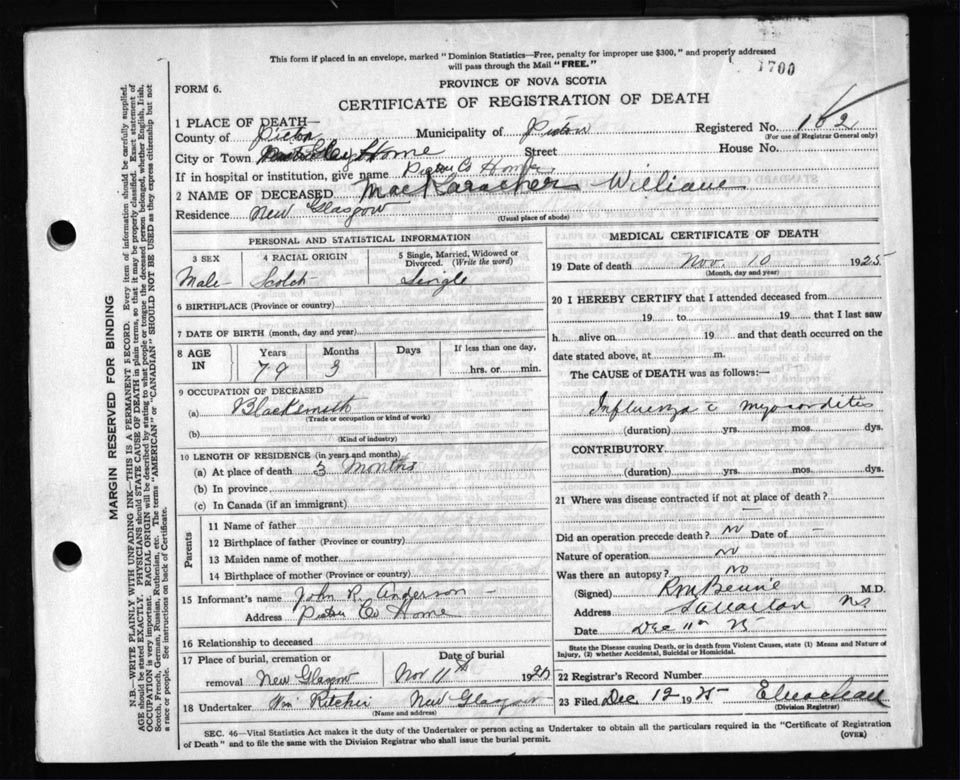 This form if placed in an envelope, marked "Dominion Statistics—Free, penalty for improper use $300," and properly addressed
will pass through the Mail "FREE."
1700
PROVINCE OF NOVA SCOTIA
FORM 6.
CERTIFICATE OF REGISTRATION OF DEATH
1 PLACE OF DEATH—
County of Pictou Municipality of Pictou Registered No. 182
(For use of Registrar General only)
City or Town Home Street House No.
If in hospital or institution, give name Pictou Co Home
2 NAME OF DECEASED William
Residence New Glasgow
(Usual place of abode)
PERSONAL AND STATISTICAL INFORMATION
3 SEX 4 RACIAL ORIGIN 5 Single, Married, Widowed or
Divorced. (Write the word)
Male Scotch Single
6 BIRTHPLACE (Province or country)
7 DATE OF BIRTH (month, day and year)
8 AGE IN Years Months Days If less than one day,
79 3 hrs. or min.
9 OCCUPATION OF DECEASED
(a) Blacksmith
(Trade or occupation or kind of work)
(b)
(Kind of industry)
10 LENGTH OF RESIDENCE (in years and months)
(a) At place of death 3 Months
(b) In province
(c) In Canada (if an immigrant)
Parents
11 Name of father
12 Birthplace of father (Province or country)
13 Maiden name of mother
14 Birthplace of mother (Province or country)
15 Informant's name John R. Anderson
Address Pictou Co Home
16 Relationship to deceased
17 Place of burial, cremation or Date of burial
removal New Glasgow Nov 11th 1925
18 Undertaker Wm Ritchie New Glasgow
(Name and address)
MEDICAL CERTIFICATE OF DEATH
19 Date of death Nov. 10 1925
(Month, day and year)
20 I HEREBY CERTIFY that I attended deceased from
19 to 19 that I last saw
h alive on 19 and that death occurred on the
date stated above, at m.
The CAUSE of DEATH was as follows:—
Influenza c̄ myocarditis
(duration) yrs. mos. dys.
CONTRIBUTORY.
(duration) yrs. mos. dys.
21 Where was disease contracted if not at place of death?
—
Did an operation precede death? No Date of —
Nature of operation No
Was there an autopsy? No
(Signed) M.D.
Address Stellarton NS
Date Dec 11th 25
State the Disease causing Death, or in death from Violent Causes, state (1) Means and Nature of
Injury, (2) whether Accidental, Suicidal or Homicidal.
22 Registrar's Record Number
23 Filed Dec 12 1925
(Division Registrar)
SEC. 46—Vital Statistics Act makes it the duty of the Undertaker or person acting as Undertaker to obtain all the particulars required in the "Certificate of Registration
of Death" and to file the same with the Division Registrar who shall issue the burial permit.
(OVER)
MARGIN RESERVED FOR BINDING
N.B.—WRITE PLAINLY WITH UNFADING INK—THIS IS A PERMANENT RECORD. Every item of information should be carefully supplied.
AGE should be stated EXACTLY. PHYSICIANS should STATE CAUSE OF DEATH in plain terms, so that it may be properly classified. Exact statement of
OCCUPATION is very important. RACIAL ORIGIN will be described by stating to what people or tongue the deceased person belonged, whether English, Irish,
Scotch, French, German, Russian, Ruthenian, etc. The terms "AMERICAN" or "CANADIAN" SHOULD NOT BE USED as they express citizenship but not
a race or people. See instructions on back of Certificate.